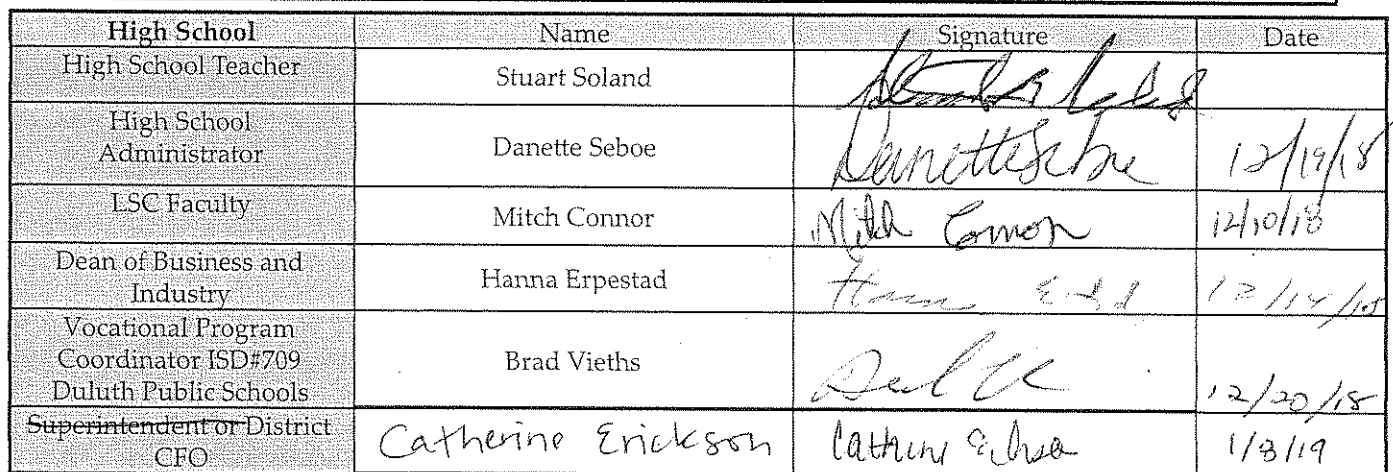 High School Name Signature Date
High School Teacher Stuart Soland
High School
Administrator Danette Seboe Danette Seboe 12/19/18
LSC Faculty Mitch Connor Mitch Connor 12/10/18
Dean of Business and
Industry Hanna Erpestad 12/14/18
Vocational Program
Coordinator ISD#709
Duluth Public Schools Brad Vieths 12/20/18
Superintendent or District
CFO Catherine Erickson 1/3/19